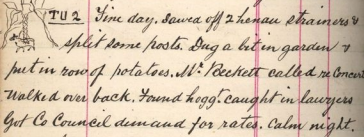 TU 2 Fine day. Sawed off 2 henau strainers &
split some posts. Dug a bit in garden &
put in row of potatoes. Mr Beckett called re Concert
Walked over back. Found hoggt caught in lawyers
Got Co Council demand for rates. Calm night